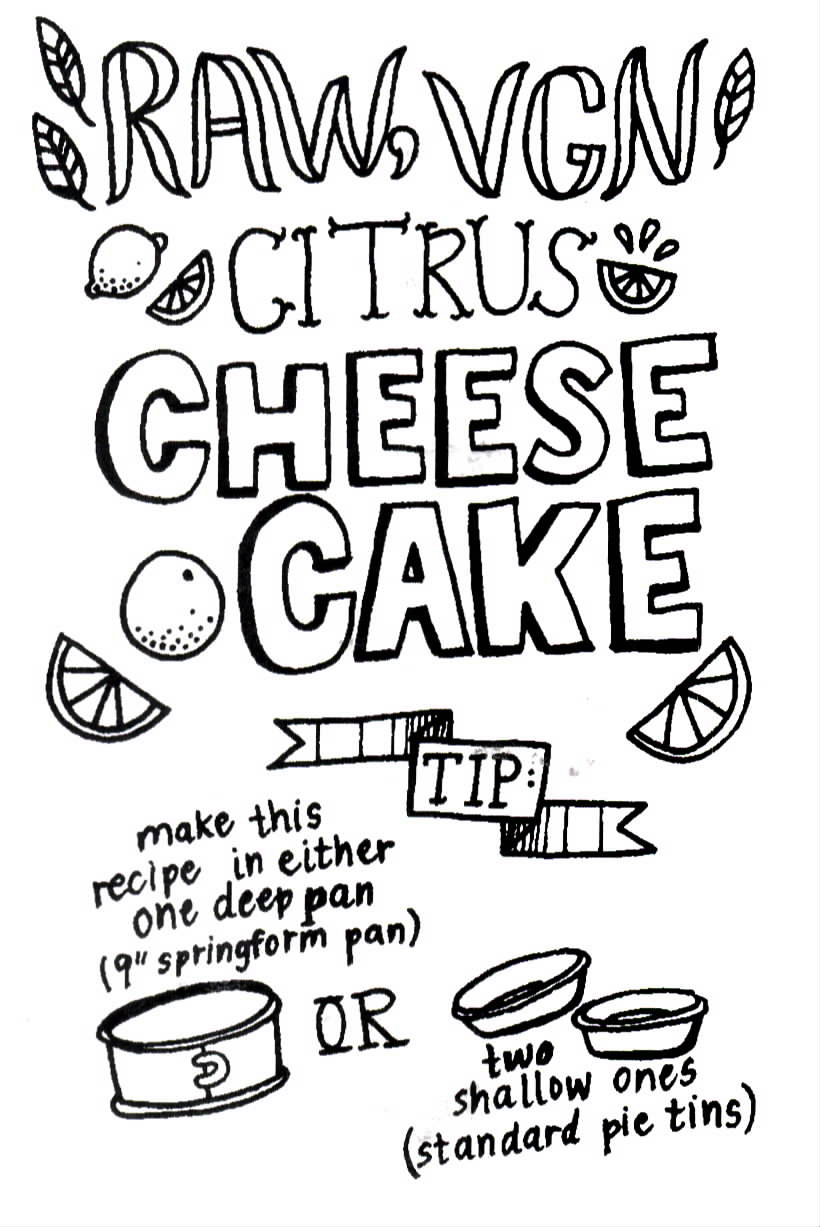 RAW, VGN
CITRUS
CHEESE
CAKE
TIP:
make this
recipe in either
one deep pan
(9" springform pan)
OR
two
shallow ones
(standard pie tins)